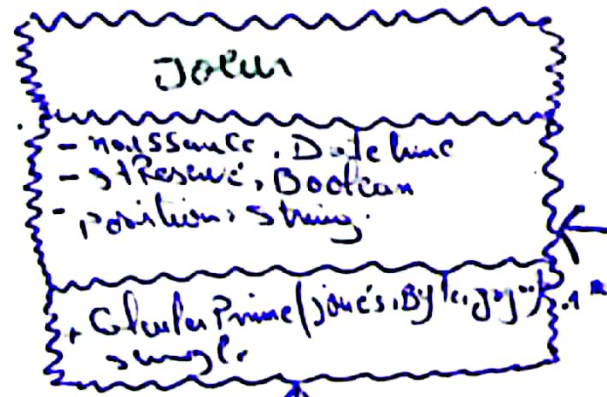 Joueur
- naissance : DateTime
- stReservé : Boolean
- position : String
+ CalculerPrime(joués : Byte,
single